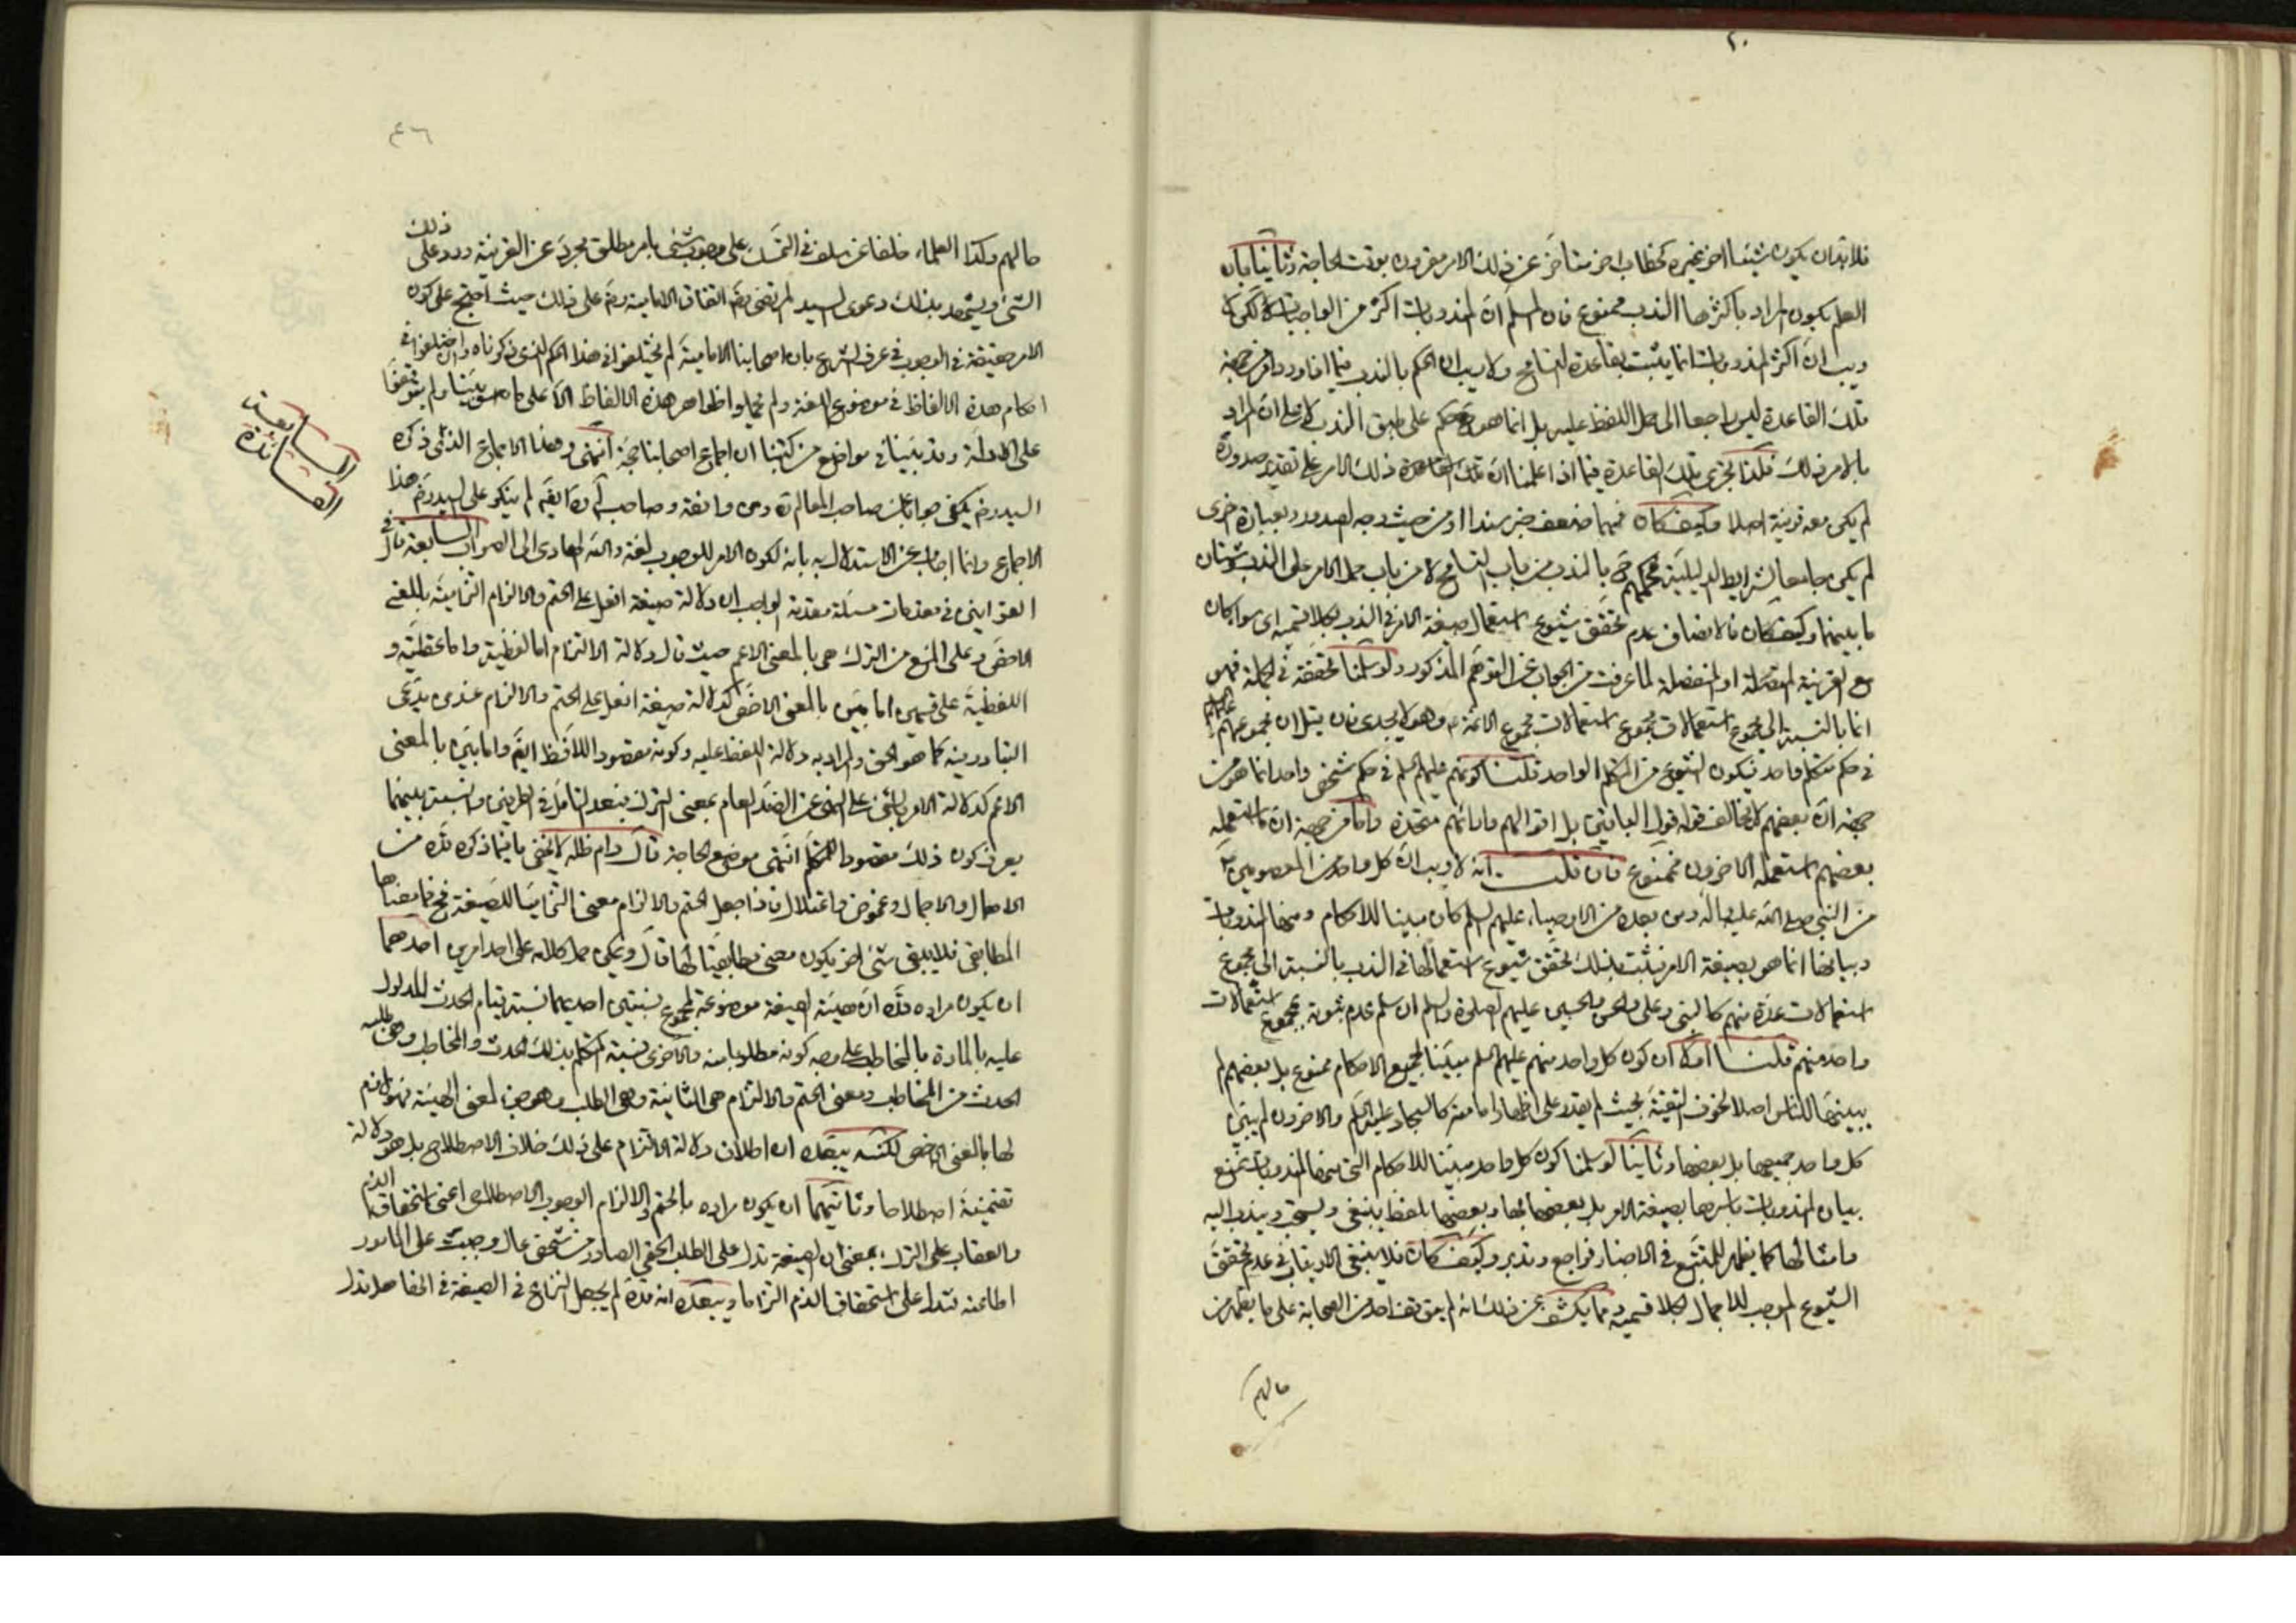 ٢٠
فلابد ان يكون شيئا اخر غيره كخطاب اخر متاخر عن ذلك الامر مقرون بوقت الحاجة وثانيا بان
العلم بكون المراد باكثرها الندب ممنوع فان المسلم ان المندوبات اكثر من الواجبات لكن لا
ريب ان اكثر المندوبات انما يثبت بقاعدة التسامح ولا ريب ان الحكم بالندب فيما افاد ورد من جهة
تلك القاعدة ليس راجعا الى حمل اللفظ عليه بل انما هو حكم على طبق الندب لا على ان المراد
بالامر ذلك قلنا تجرى تلك القاعدة فيما اذا علمنا ان تلك القاعدة ذلك الامر على تقدير صدوره
لم يكن معه قرينة اصلا وكيف كان فمهما ضعف خبر سندا او من حيث وجه الصدور وبعبارة اخرى
لم يكن جامعا لشرايط الدليلية فحكمهم ح بالندب من باب التسامح لا من باب حمل الامر على الندب وشتان
ما بينهما وكيف كان فالانصاف عدم تحقق شيوع استعمال صيغة الامر في الندب بكلا قسميه اى سواء كان
مع القرينة المتصلة او المنفصلة لما عرفت من الجواب عن التوهم المذكور ولو سلمنا تحققه في الجملة فهو
انما بالنسبة الى مجموع استعمالات مجموع الائمة ع وهو لا يجدى فان قيل ان مجموعهم عليهم السلم
في حكم متكلم واحد فيكون الشيوع من المتكلم الواحد قلنا كونهم عليهم السلم في حكم شخص واحد انما هو من
جهة ان بعضهم لا يخالف قوله قول الباقين بل اقوالهم وارائهم متحدة واما من جهة ان ما استعمله
بعضهم استعمله الاخرون فممنوع فان قلت انه لا ريب ان كل واحد من المعصومين ع
من النبي صلى الله عليه واله ومن بعده من الاوصياء عليهم السلم كان مبينا للاحكام ومنها المندوبات
وبيانها انما هو بصيغة الامر فيثبت بذلك تحقق شيوع استعمالها في الندب بالنسبة الى مجموع
استعمالات عدة منهم كالنبي وعلى والحسن والحسين عليهم الصلوة والسلم ان سلم عدم ثبوته بمجموع استعمالات
واحد منهم قلنا اولا ان كون كل واحد منهم عليهم السلم مبينا لجميع الاحكام ممنوع بل بعضهم لم
يبينها للناس اصلا لخوف التقية بحيث لم يقدر على اظهار امامته كالسجاد عليه السلم والاخرون لم يبين
كل واحد جميعها بل بعضها وثانيا لو سلمنا كون كل واحد مبينا للاحكام التي منها المندوبات نمنع
بيان المندوبات باسرها بصيغة الامر بل بعضها بها وبعضها بلفظ ينبغى ويستحب ويندب اليه
وامثالها كما يظهر للمتتبع في الاخبار فراجع وتدبر وكيف كان فلا ينبغى الارتياب في عدم تحقق
الشيوع الموجب للاجمال بكلا قسميه ومما يكشف عن ذلك انه لم يتوقف احد من الصحابة على ما يظهر من
حالهم
٤٦
حالهم وكذا العلماء خلفا عن سلف في التمسك على وجوب شئ بامر مطلق مجرد عن القرينة ورد على ذلك
الشئ ويشهد بذلك دعوى السيد المرتضى ره اتفاق الامامية ره على ذلك حيث احتج على كون
الامر حقيقة في الوجوب في عرف الشرع بان اصحابنا الامامية لم يختلفوا في هذا الحكم الذى ذكرناه وان اختلفوا في
احكام هذه الالفاظ في موضوع اللغة ولم يحملوا ظواهر هذه الالفاظ الا على ما سبق بيننا ولم يتوقفوا
على الادلة وقد بينا في مواضع من كتبنا ان اجماع اصحابنا حجة انتهى وهذا الاجماع الذى ذكره
السيد ره يكفى صوابا بل صاحب المعالم ره وافقه وصاحب ايضا لم ينكر على السيد ره هذا
الاجماع وانما اجاب عن الاستدلال به بانه لكون الامر للوجوب لغة والله الهادى الى الصواب السابعة قال في
القوانين في مقدمات مسئلة مقدمة الواجب ان دلالة صيغة افعل على الحتم والالزام التزامية باللفظ
الاخص وعلى المنع من الترك هى بالمعنى الاعم حيث قال دلالة الالتزام اما لفظية واما عقلية و
اللفظية على قسمين اما بين بالمعنى الاخص كدلالة صيغة افعل على الحتم والالزام عند من يدعى
التبادر فيه كما هو الحق والمراد به دلالة اللفظ عليه وكونه مقصود اللافظ ايضا واما بين بالمعنى
الاعم كدلالة الامر بالشئ على النهى عن الضد العام بمعنى الترك فبعد التامل في الطرفين والنسبة بينهما
يعرف كون ذلك مقصود المتكلم انتهى موضع الحاجة قال دام ظله لا يخفى ما فيما ذكره قده من
الاهمال والاجمال وغموض واختلال فاذا جعل الحتم والالزام معنى التزاميا للصيغة فح فما معناها
المطابقى فلا يبقى شئ اخر يكون معنى مطابقيا لها قال ويمكن حمل كلامه على احد امرين احدهما
ان يكون مراده قده ان هيئة الصيغة موضوعة لمجموع نسبتين احديهما نسبة قيام الحدث المدلول
عليه بالمادة بالمخاطب على وجه كونه مطلوبا منه والاخرى نسبة المتكلم بذلك الحدث والمخاطب وهى طلبه
الحدث من المخاطب ومعنى الحتم والالتزام هى الثانية وهى الطلب وهو جزء لمعنى الهيئة فهو لازم
لها بالمعنى الاخص لكنه يبعده ان اطلاق دلالة الالتزام على ذلك خلاف الاصطلاح بل هو دلالة
تضمنية اصطلاحا وثانيهما ان يكون مراده بالحتم والالزام الوجوب الاصطلاحى اعنى استحقاق الذم
والعقاب على الترك بمعنى ان الصيغة تدل على الطلب الحتمى الصادر من شخص عال وجبت على المامور
اطاعته فتدل على استحقاق الذم التزاما ويبعده انه قده لم يجعل النزاع في الصيغة في انها هل تدل
السابعة
الفائدة